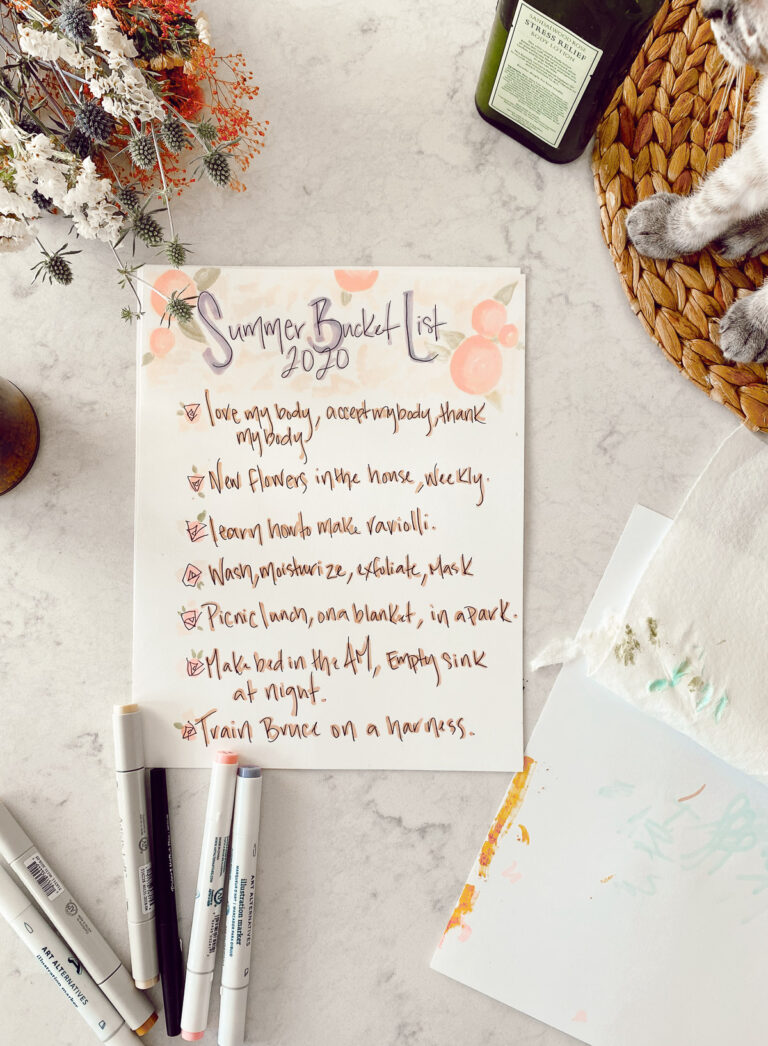 SANDALWOOD ROSE
STRESS RELIEF
BODY LOTION
Summer Bucket List
2020
love my body, accept my body, thank
my body
New flowers in the house, weekly.
learn how to make raviolli.
Wash, moisturize, exfoliate, Mask
Picnic lunch, on a blanket, in a park.
Make bed in the AM, Empty sink
at night.
Train Bruce on a harness.
ART ALTERNATIVES
illustration marker
ART ALTERNATIVES
illustration marker